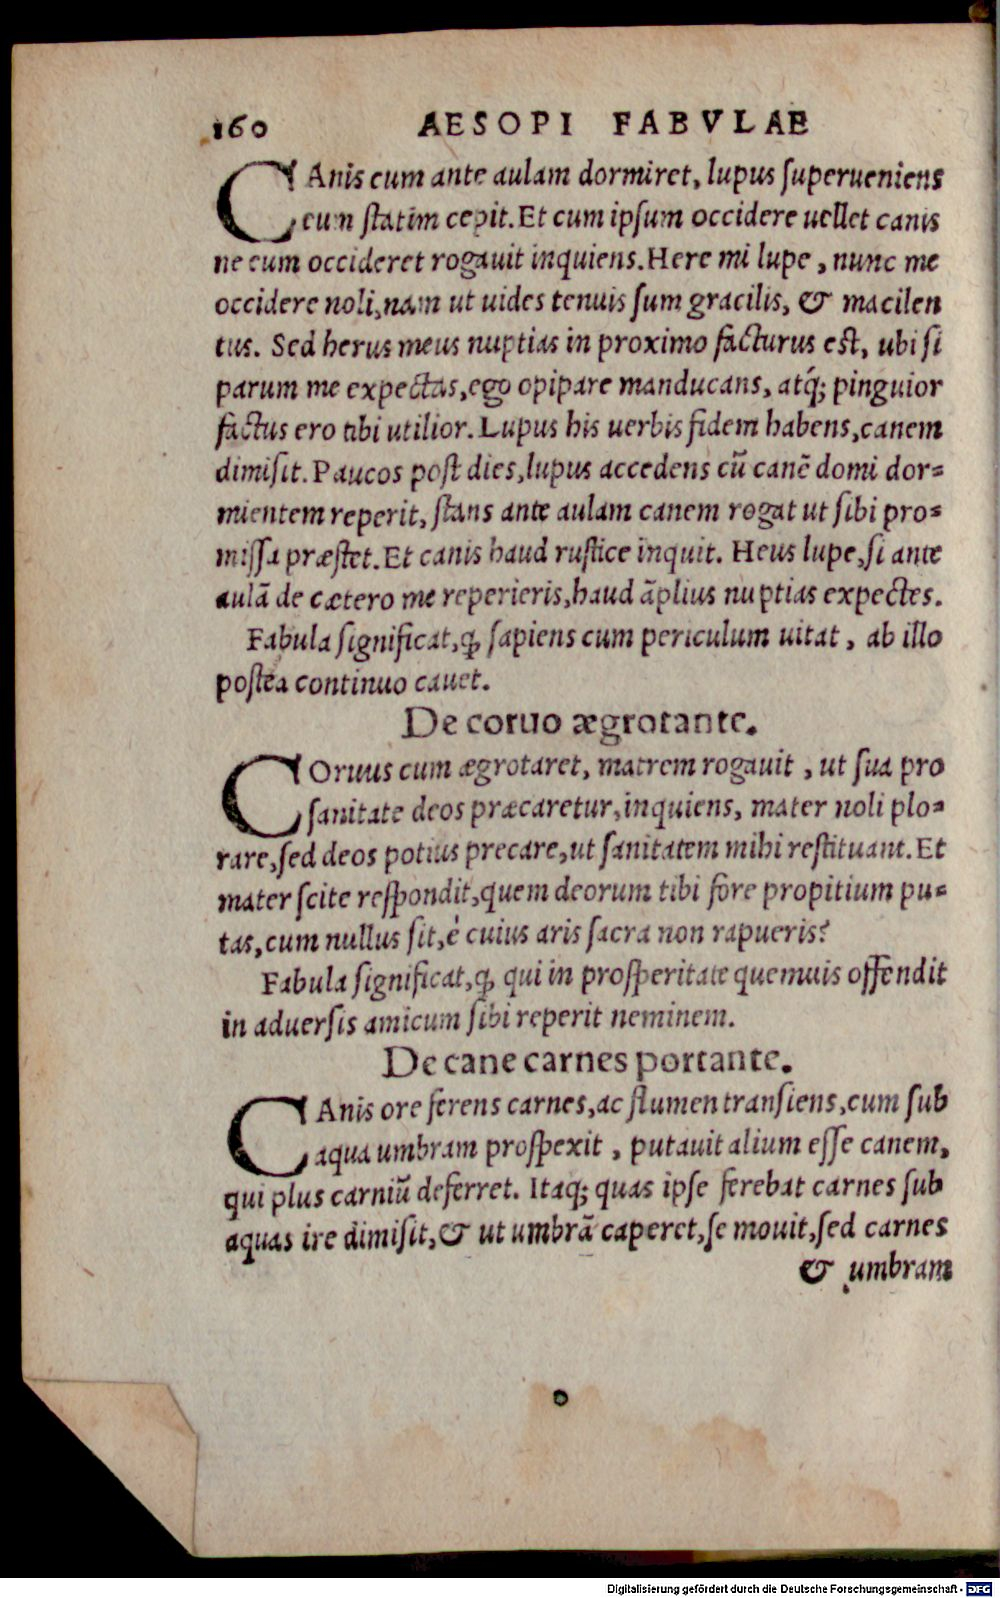 160 AESOPI FABVLAE
CAnis cum ante aulam dormiret, lupus ſuperueniens
eum ſtatim cepit. Et cum ipſum occidere uellet canis
ne eum occideret rogauit inquiens. Here mi lupe, nunc me
occidere noli, nam ut uides tenuis ſum gracilis, & macilen
tus. Sed herus meus nuptias in proximo facturus eſt, ubi ſi
parum me expectas, ego opipare manducans, atq́; pinguior
factus ero tibi utilior. Lupus his uerbis fidem habens, canem
dimiſit. Paucos poſt dies, lupus accedens cū canē domi dor=
mientem reperit, ſtans ante aulam canem rogat ut ſibi pro=
miſſa præſtet. Et canis haud ruſtice inquit. Heus lupe, ſi ante
aulā de cætero me reperieris, haud āplius nuptias expectes.
Fabula ſignificat, ꝙ ſapiens cum periculum uitat, ab illo
poſtea continuo cauet.
De coruo ægrotante.
COruus cum ægrotaret, matrem rogauit, ut ſua pro
ſanitate deos præcaretur, inquiens, mater noli plo=
rare, ſed deos potius precare, ut ſanitatem mihi reſtituant. Et
mater ſcite reſpondit, quem deorum tibi fore propitium pu=
tas, cum nullus ſit, è cuius aris ſacra non rapueris?
Fabula ſignificat, ꝙ qui in proſperitate quemuis offendit
in aduerſis amicum ſibi reperit neminem.
De cane carnes portante.
CAnis ore ferens carnes, ac flumen tranſiens, cum ſub
aqua umbram proſpexit, putauit alium eſſe canem,
qui plus carniū deferret. Itaq; quas ipſe ferebat carnes ſub
aquas ire dimiſit, & ut umbrā caperet, ſe mouit, ſed carnes
& umbram
Digitalisierung gefördert durch die Deutsche Forschungsgemeinschaft - DFG